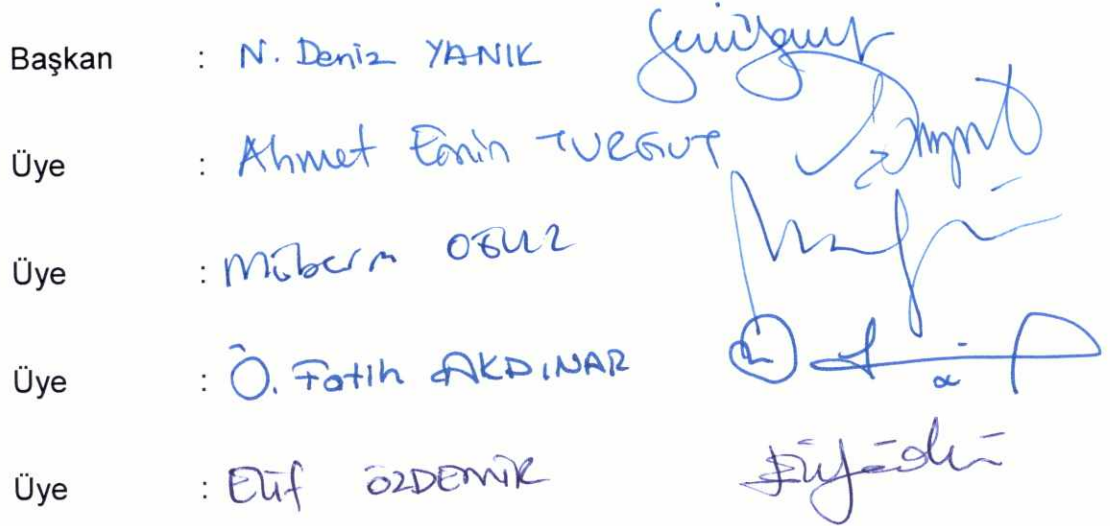 Başkan : N. Deniz YANIK
Üye : Ahmet Emin TURGUT
Üye : Müberra OĞUZ
Üye : Ö. Fatih AKDINAR
Üye : Elif ÖZDEMİR